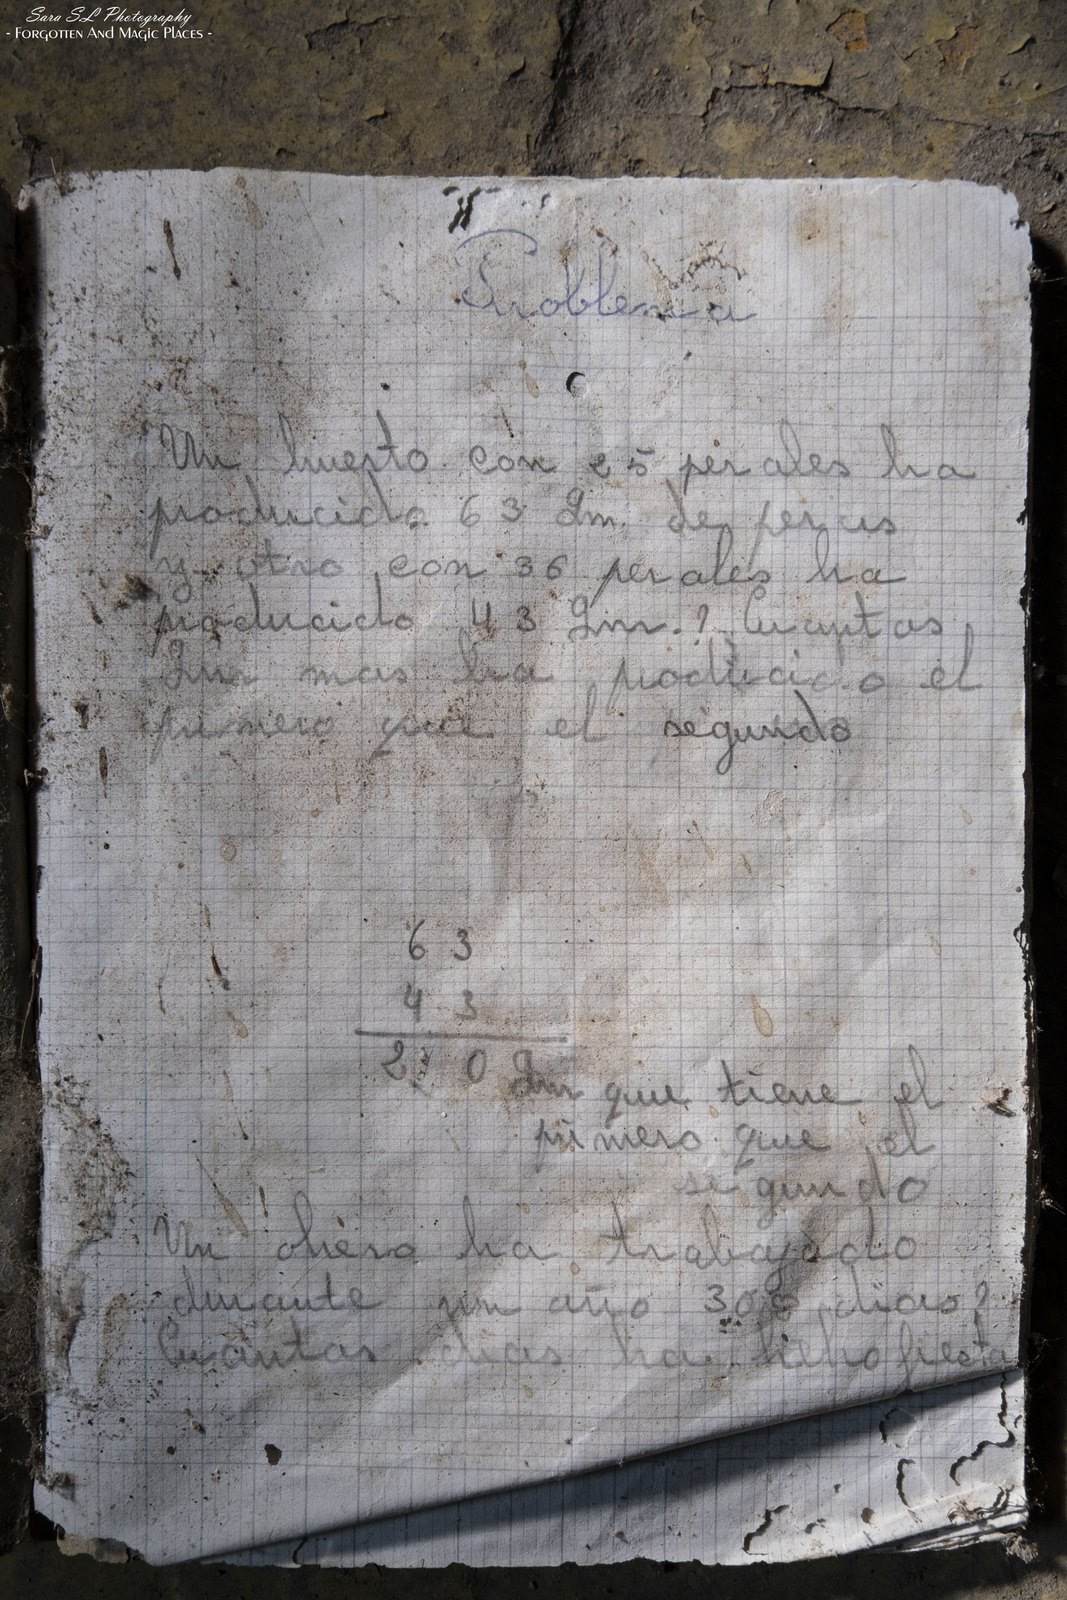 Sara SL Photography
- Forgotten And Magic Places -
Problema
Un huerto con 25 perales ha
producido 63 Qm. de peras
y otro con 36 perales ha
producido 43 Qm.? Cuantas
Qm mas ha producido el
primero que el segundo
63
43
20 Qm que tiene el
primero que el
segundo
Un obrero ha trabajado
durante un año dias?
Cuantas dias ha fiesta